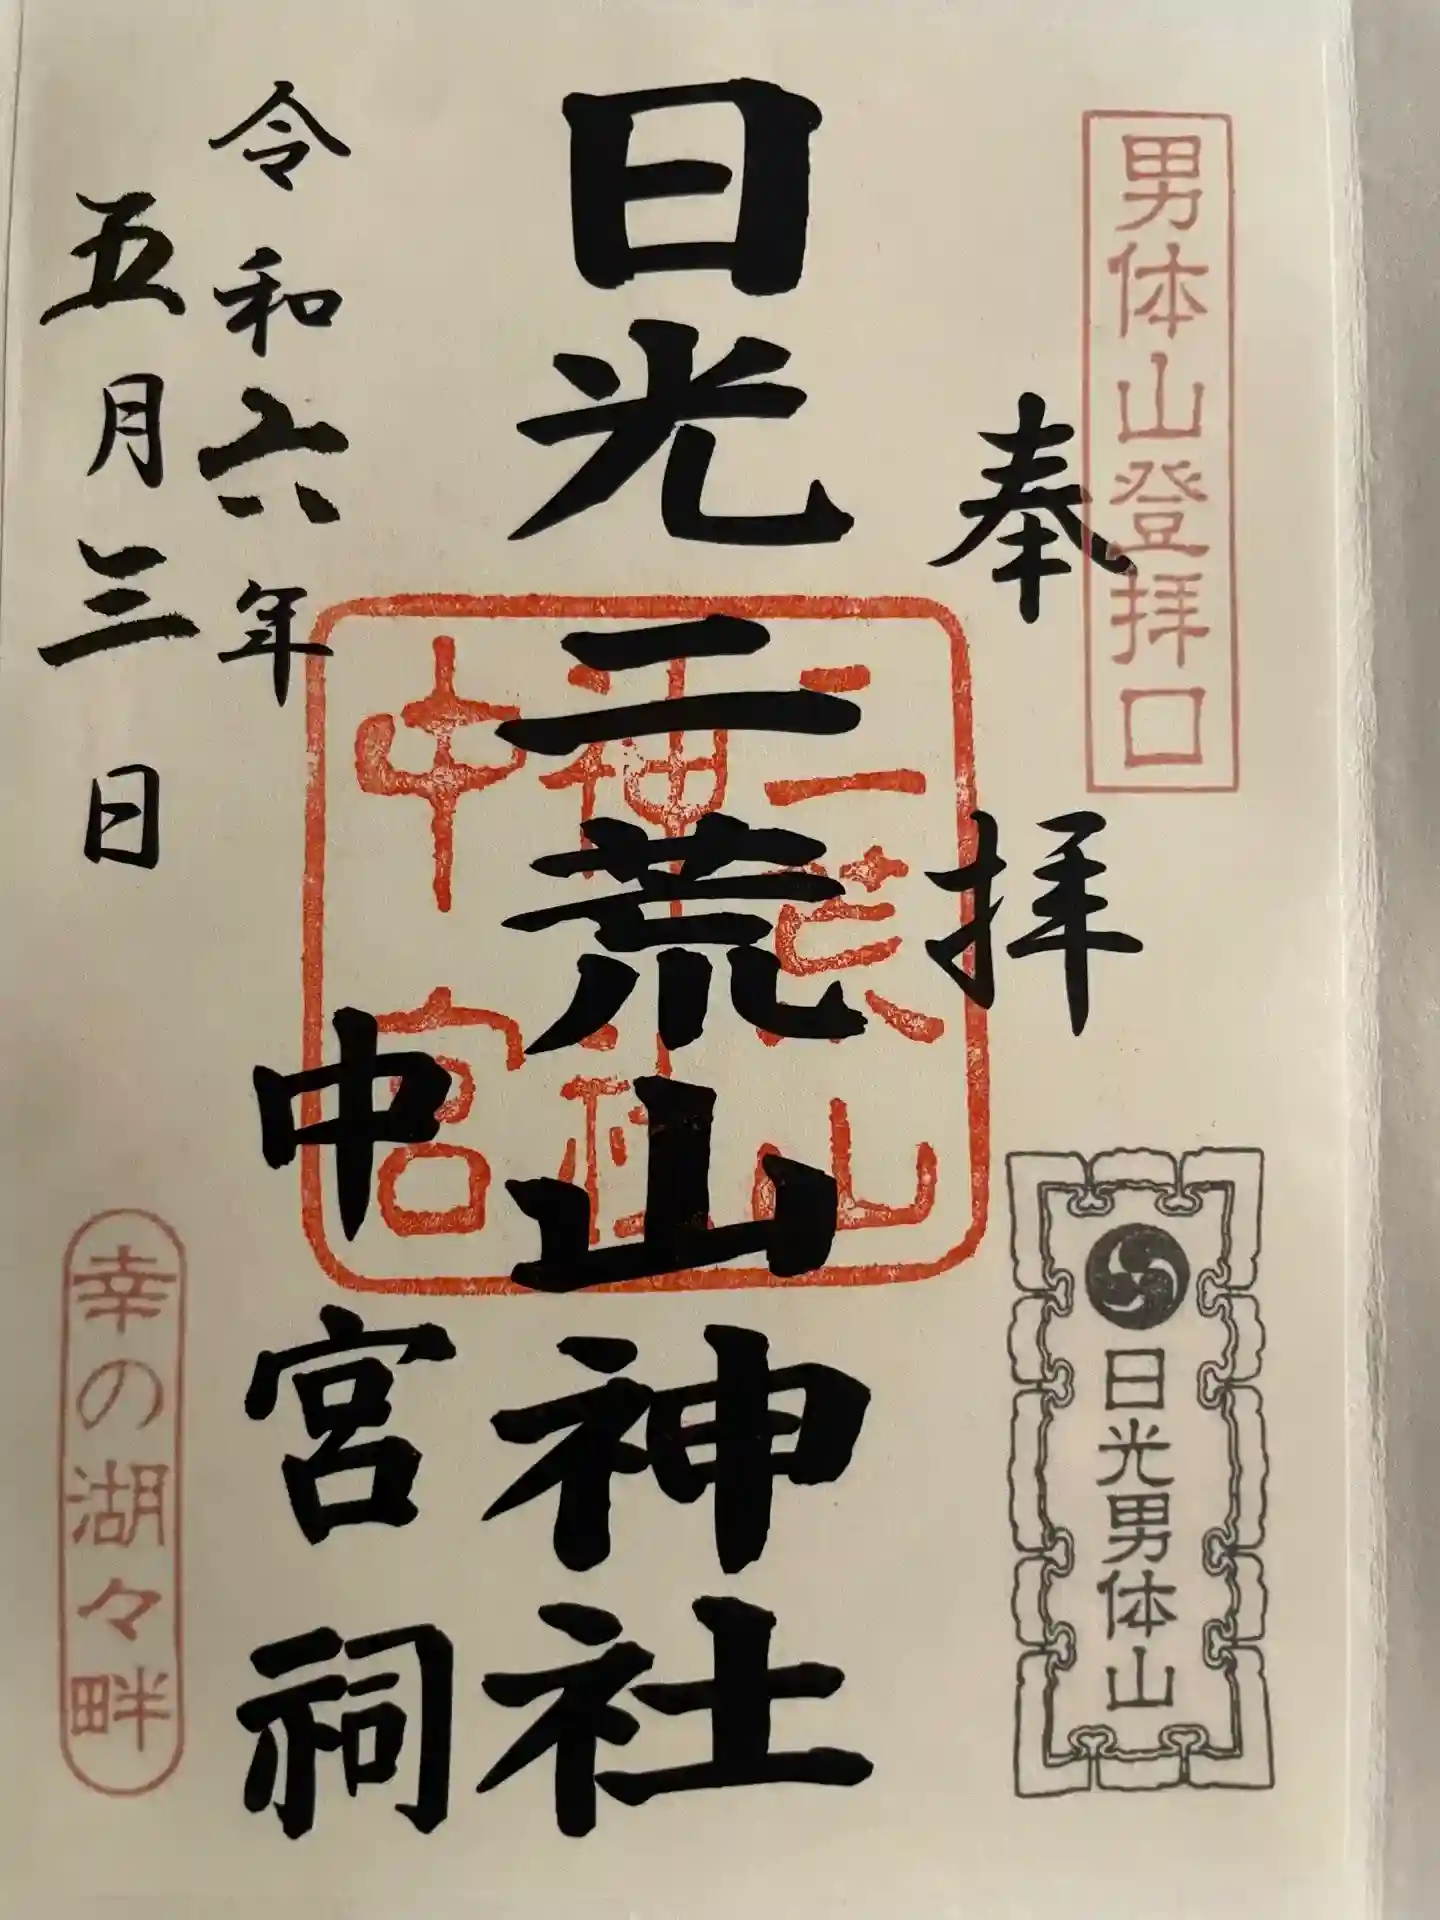 男体山登拝口
奉拝
日光男体山
日光二荒山神社
二荒山
神社
中宮
中宮祠
令和六年
五月三日
幸の湖々畔